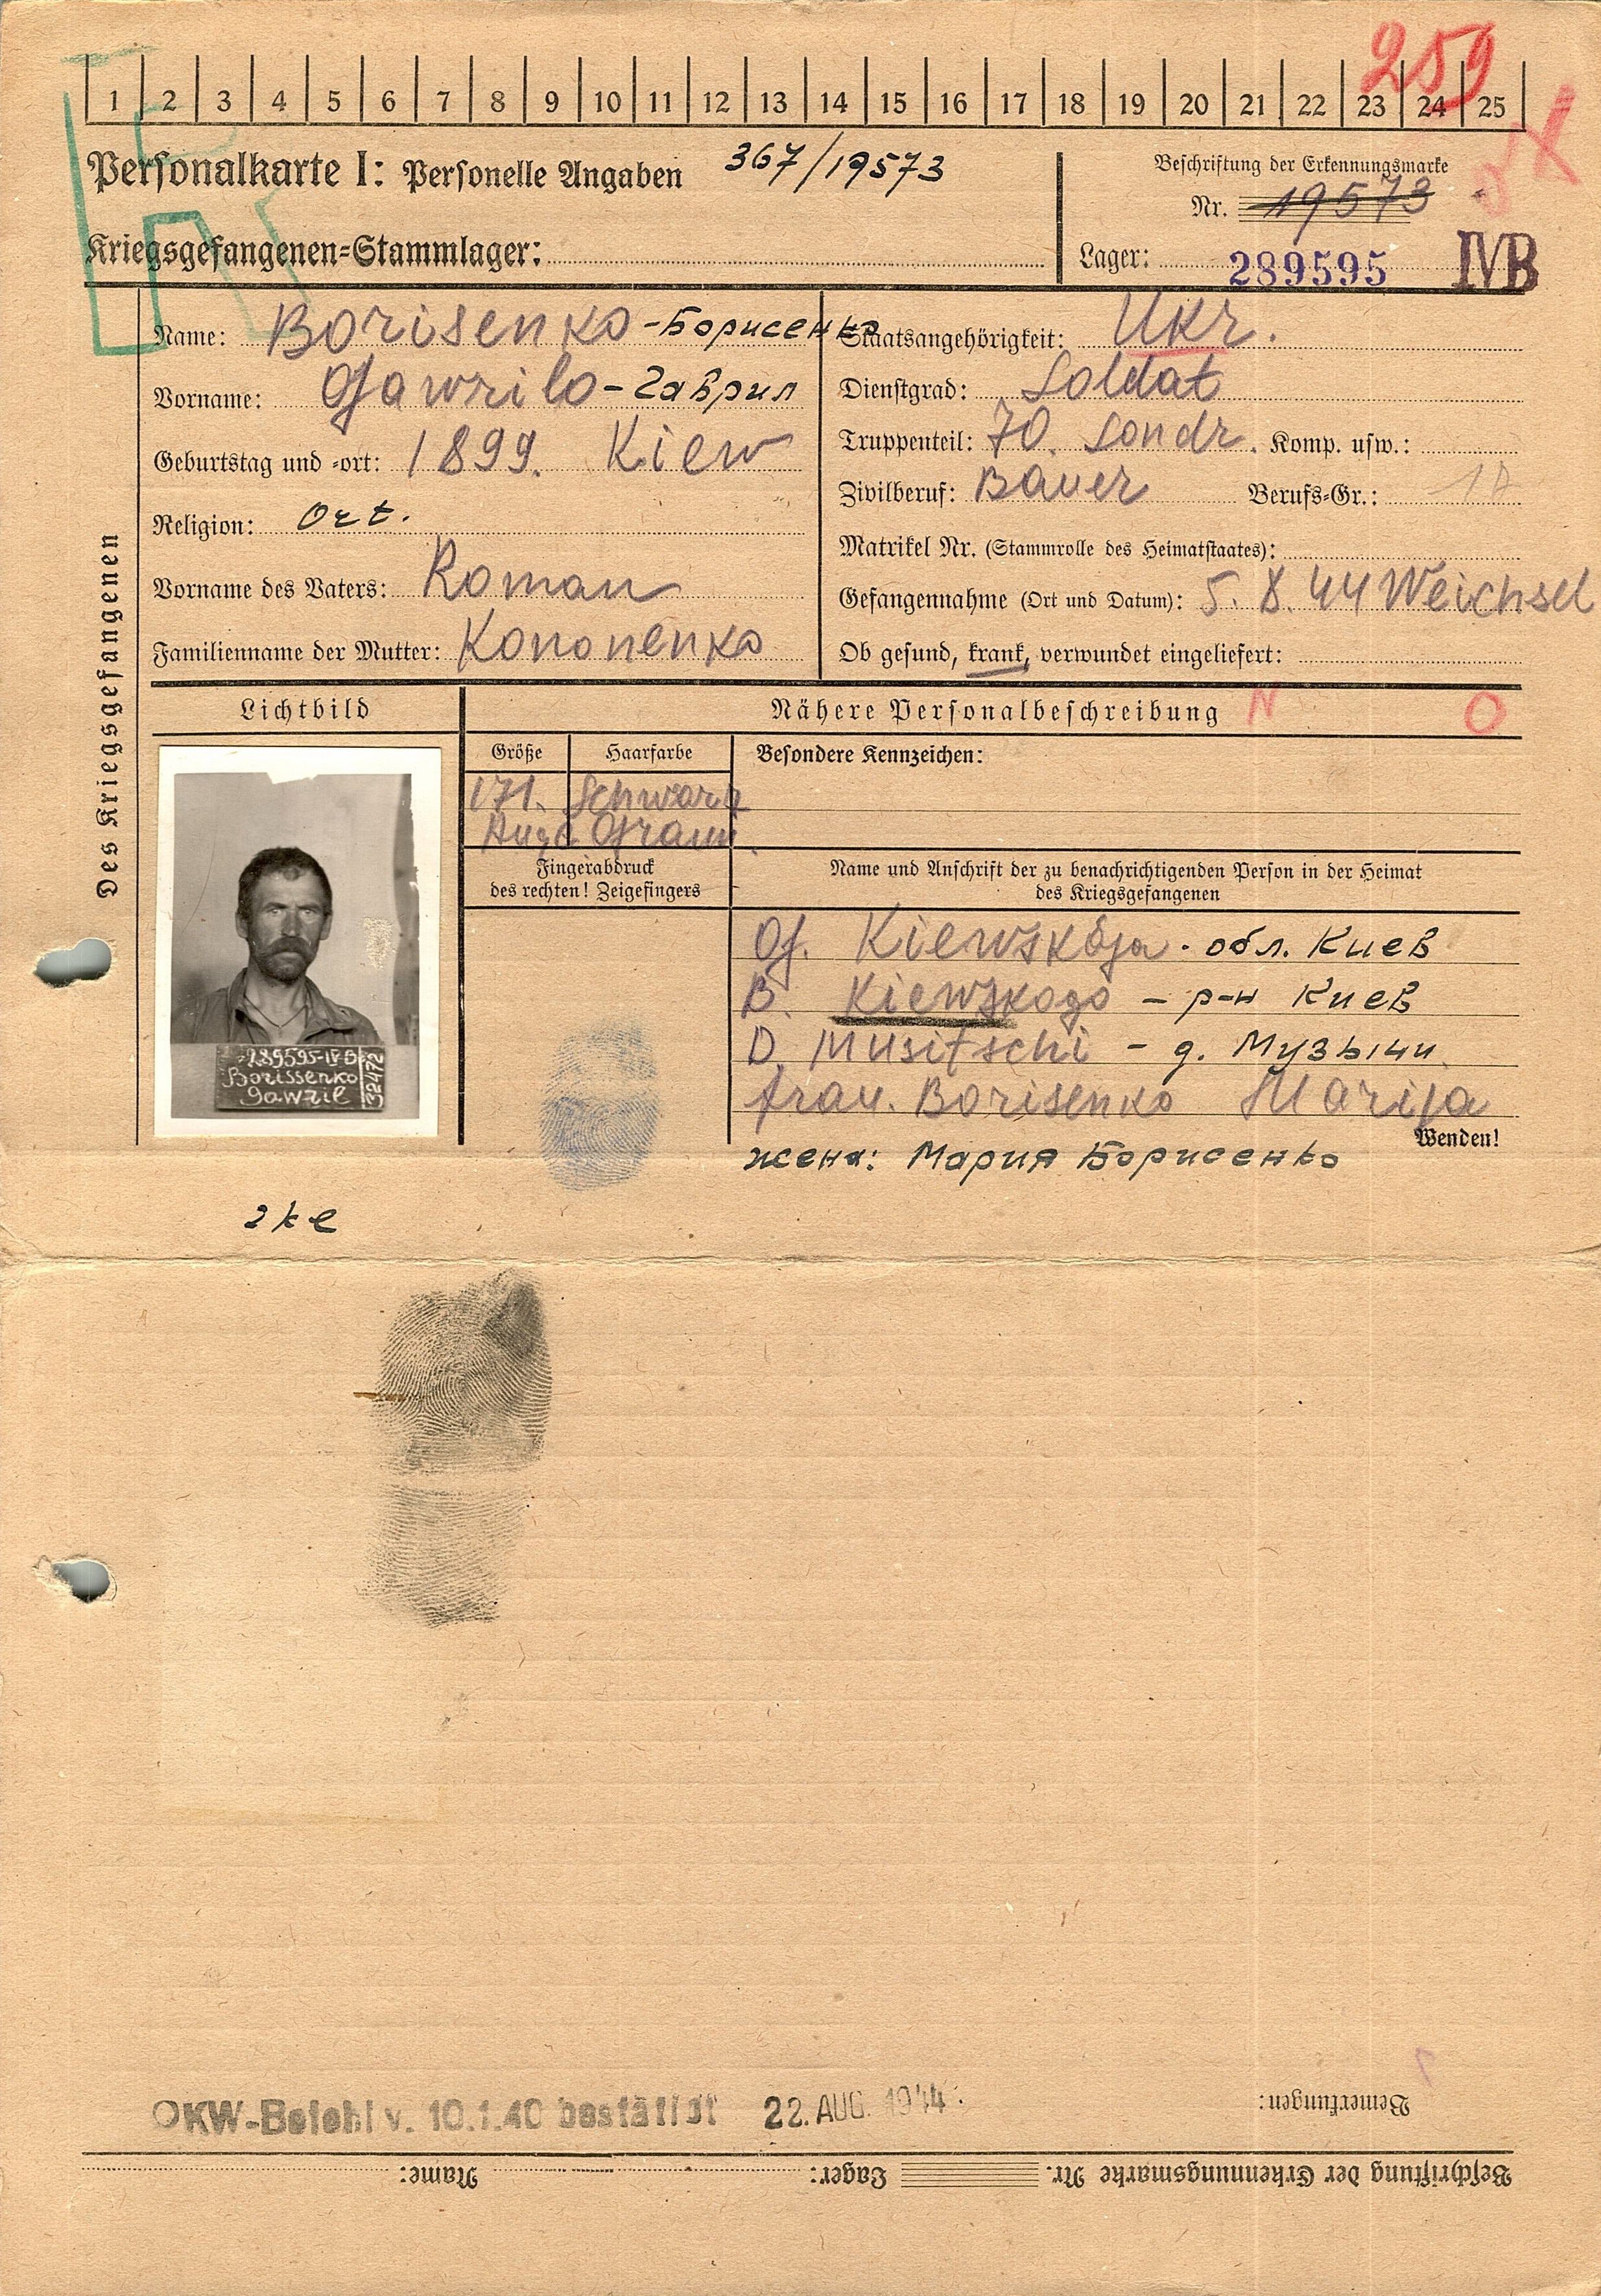 259
1 2 3 4 5 6 7 8 9 10 11 12 13 14 15 16 17 18 19 20 21 22 23 24 25
Personalkarte I: Personelle Angaben 367/19573
Beschriftung der Erkennungsmarke
Nr. 19573
Kriegsgefangenen-Stammlager:
Lager: 289595 IVB
Des Kriegsgefangenen
Name: Borisenko - Борисенко
Vorname: Gawrilo - Гаврил
Geburtstag und -ort: 1899. Kiew
Religion: Ort.
Vorname des Vaters: Roman
Familienname der Mutter: Kononenko
Staatsangehörigkeit: Ukr.
Dienstgrad: Soldat
Truppenteil: 70. Sondr. Komp. usw.:
Zivilberuf: Bauer Berufs-Gr.:
Matrikel Nr. (Stammrolle des Heimatstaates):
Gefangennahme (Ort und Datum): 5. 8. 44 Weichsel
Ob gesund, krank, verwundet eingeliefert:
Lichtbild
Nähere Personalbeschreibung N O
Größe Haarfarbe
171. Schwarz
Auge Graun.
Besondere Kennzeichen:
Fingerabdruck
des rechten! Zeigefingers
Name und Anschrift der zu benachrichtigenden Person in der Heimat
des Kriegsgefangenen
G. Kiewskaja - обл. Киев
B. Kiewskogo - р-н Киев
D. Musitschi - д. Музычи
frau. Borisenko Marija
Wenden!
жена: Мария Борисенко
289595-IVB
Borissenko
Gawril
32472
OKW-Befehl v. 10.1.40 bestätigt 22. AUG. 1944
Bemerkungen:
Beschriftung der Erkennungsmarke Nr. Lager: Name: